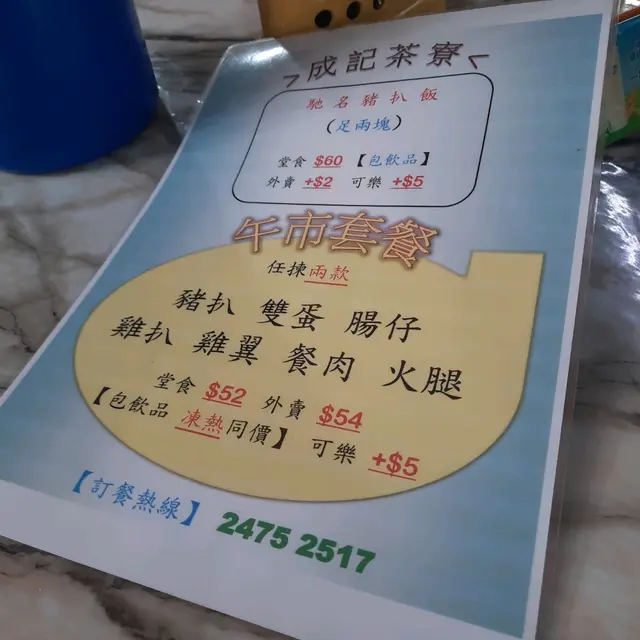 成記茶寮
馳名豬扒飯
(足兩塊)
堂食 $60 【包飲品】
外賣 +$2 可樂 +$5
午市套餐
任揀兩款
豬扒 雙蛋 腸仔
雞扒 雞翼 餐肉 火腿
堂食 $52 外賣 $54
【包飲品 凍熱同價】 可樂 +$5
【訂餐熱線】 2475 2517